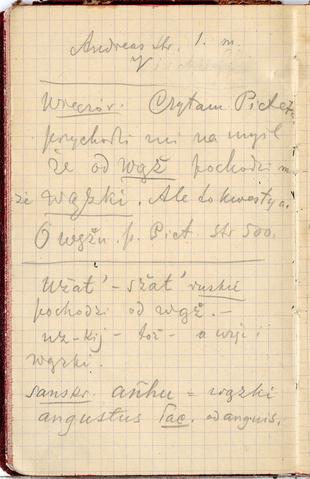 Andreas Str. 1. m.
V
Wieczór. Czytam Picteta
przychodzi mi na myśl
że od wąż pochodzi mo
że wązki. Ale to kwestya.
O wężu. p. Pict. str 500.
Użat' – sżat' ruskie
pochodzi od wąż. –
uz-kij – toż – a wije i
wązki.
sanskr. añhu = wązki
angustus łac. od anguis.